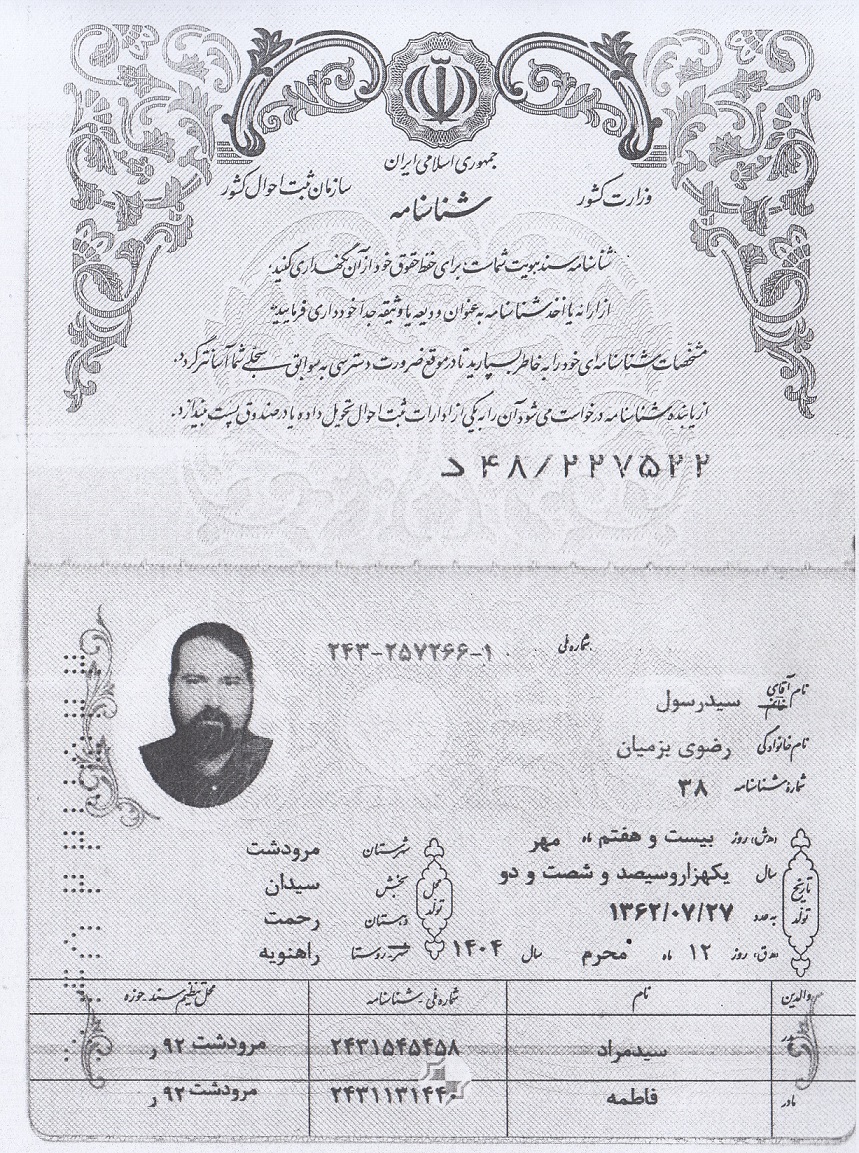 جمهوری اسلامی ایران
وزارت کشور
سازمان ثبت احوال کشور
شناسنامه
شناسنامه سند هویت شماست برای حفظ حقوق خود از آن نگهداری کنید.
از ارائه یا اخذ شناسنامه به عنوان ودیعه یا وثیقه جداً خودداری فرمایید.
مشخصات شناسنامه‌ای خود را به خاطر بسپارید تا در موقع ضرورت دسترسی به سوابق سجلی شما آسانتر گردد.
از یابنده شناسنامه درخواست می‌شود آن را به یکی از ادارات ثبت احوال تحویل داده یا در صندوق پست بیندازد.
د ۴۸/۲۲۷۵۲۲
شماره ملی ۲۴۳-۲۵۷۲۶۶-۱
نام آقای خانم سیدرسول
نام خانوادگی رضوی بزمیان
شماره شناسنامه ۳۸
تاریخ تولد
(ه‍.ش) روز بیست و هفتم ماه مهر
سال یکهزاروسیصد و شصت و دو
به عدد ۱۳۶۲/۰۷/۲۷
(ه‍.ق) روز ۱۲ ماه محرم سال ۱۴۰۴
محل تولد
شهرستان مرودشت
بخش سیدان
دهستان رحمت
شهر-روستا راهنویه
والدین نام شماره ملی-شناسنامه محل تنظیم سند-حوزه
پدر سیدمراد ۲۴۳۱۵۴۵۴۵۸ مرودشت ۹۲ ر
مادر فاطمه ۲۴۳۱۱۳۱۴۴۰ مرودشت ۹۲ ر